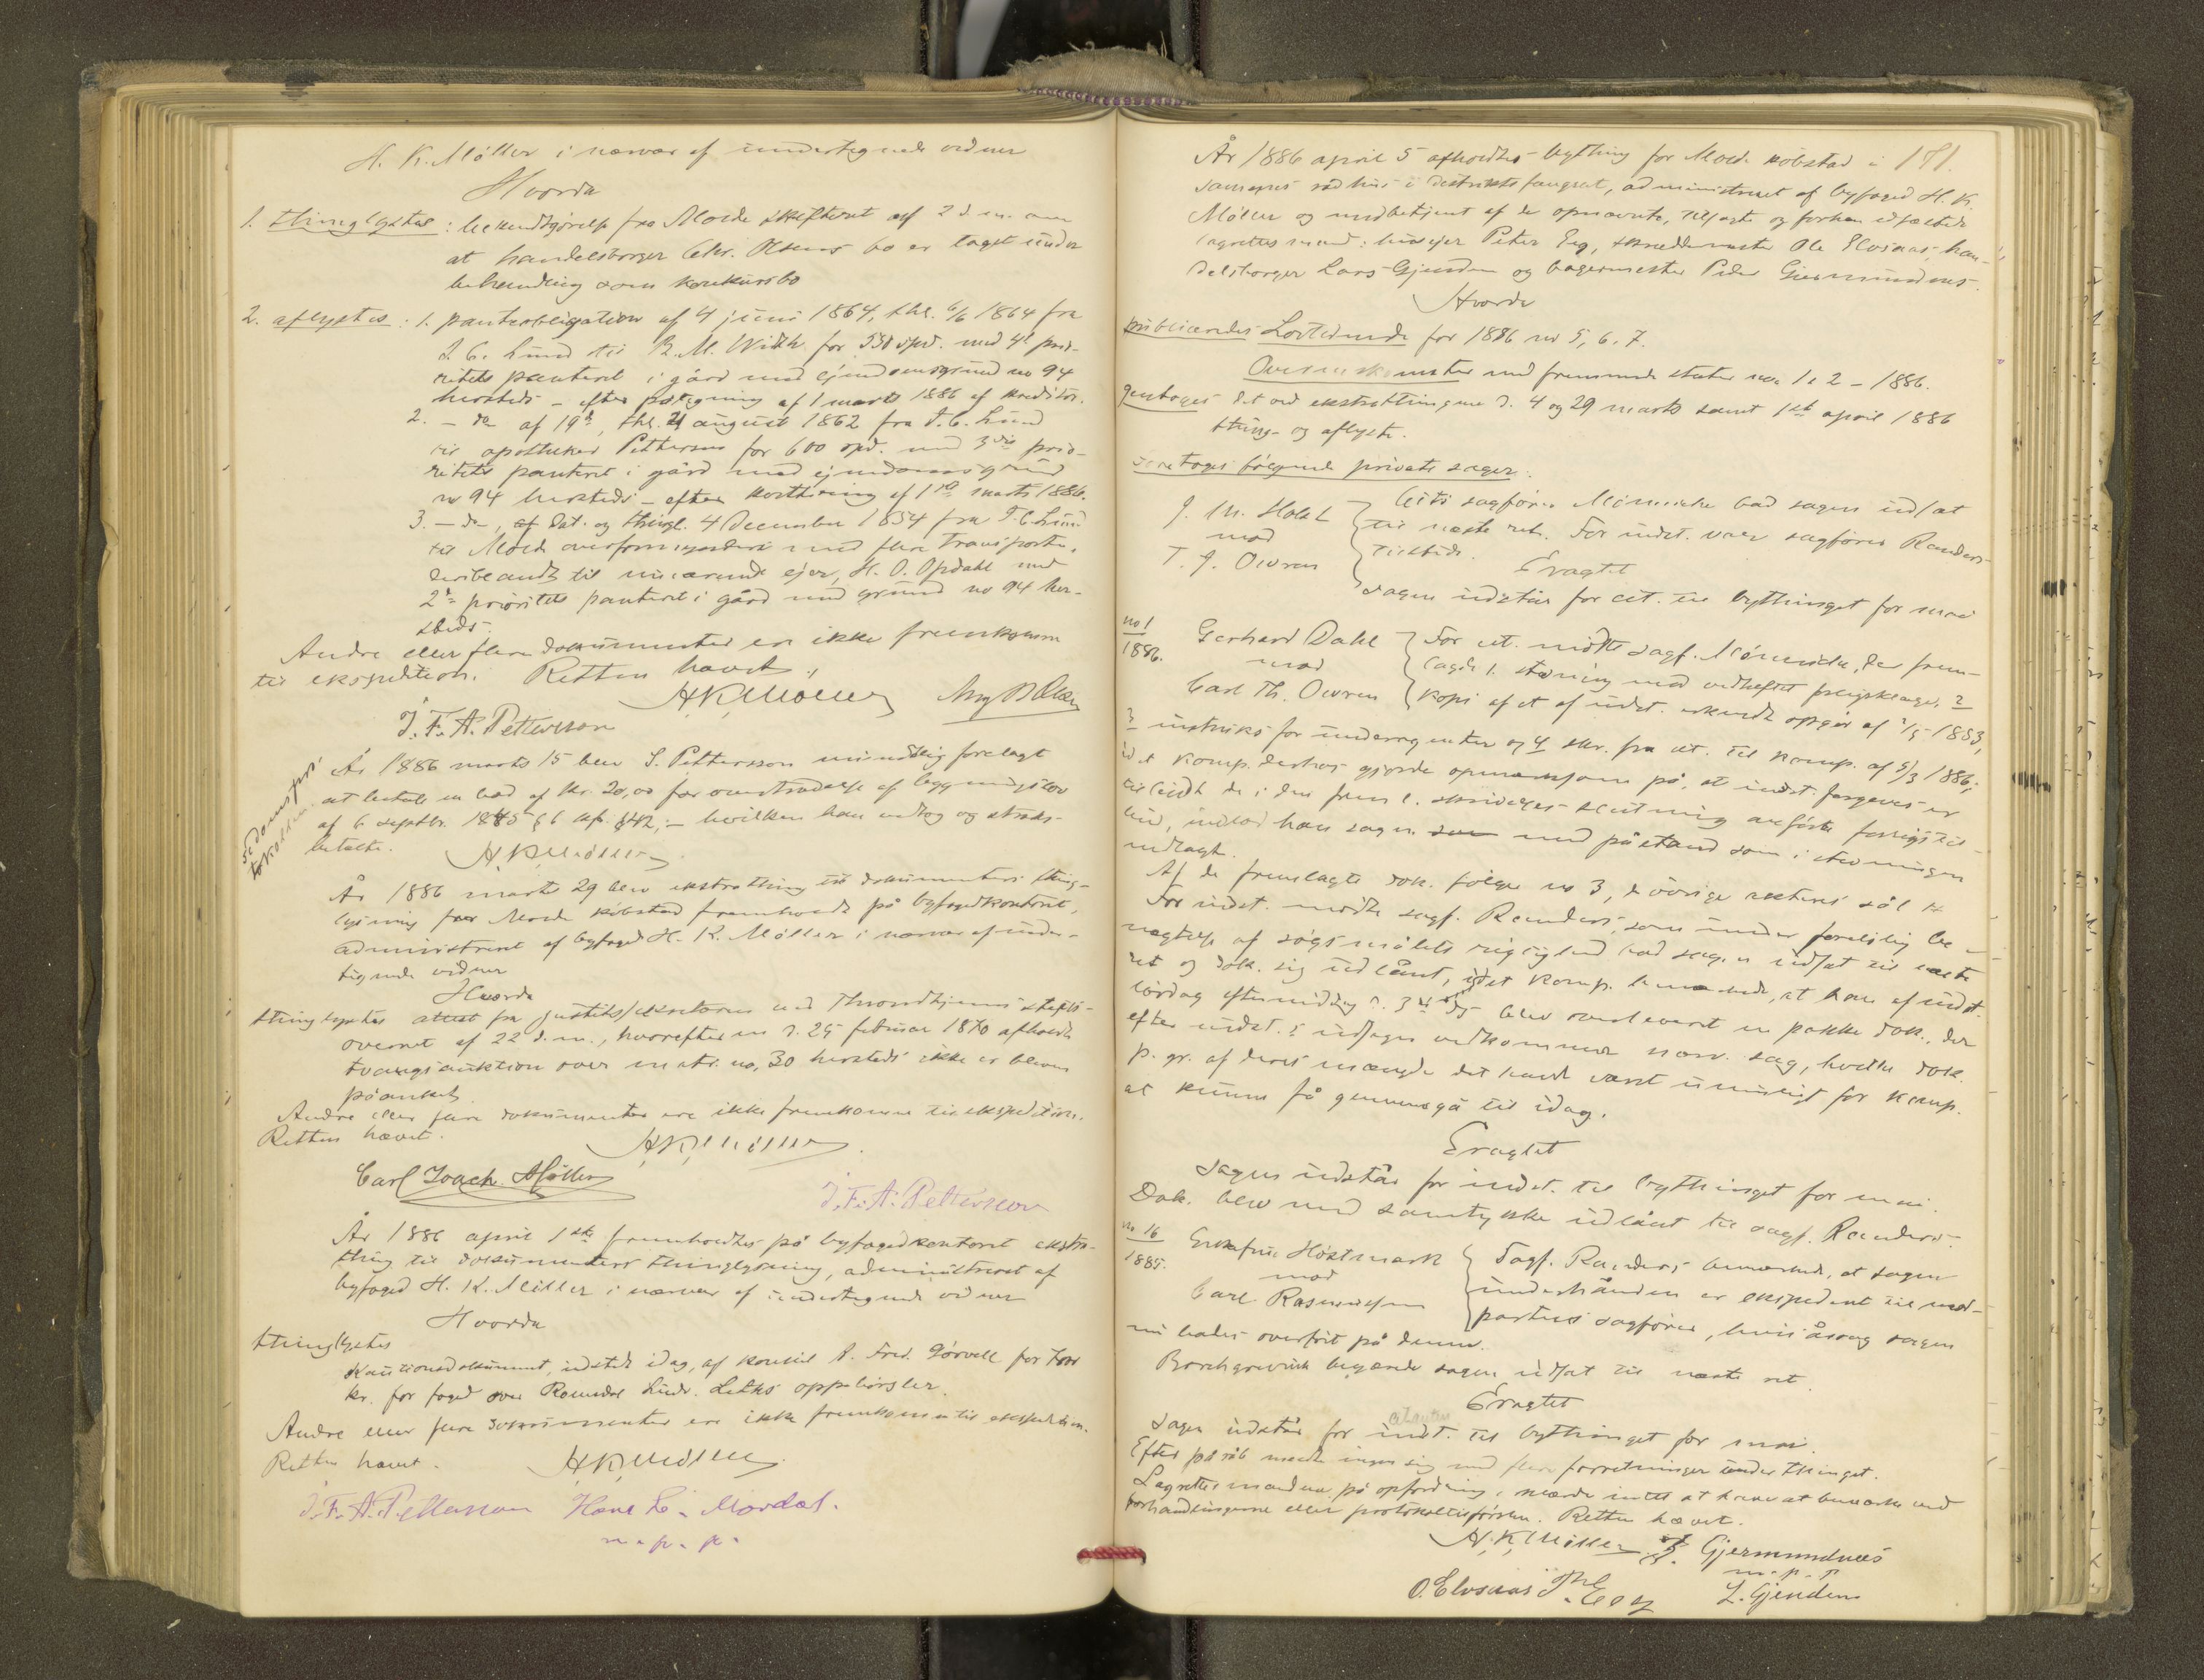 H. K. Møller i nærvær af undertegnede vidner
Hvorda
1. thinglystes: bekendtgjørelse fra Molde skifteret af 2 d. m. om
at handelsborger Chr. Olsens bo er taget under
behandling som konkursbo
2. aflystes: 1. pantobligation af 4 juni 1864, thl. 6/6 1864 fra
C. Lund til B. M. Width for 530 spd. med 4d prio-
ritets panteret i gård med ejendomsgrund no 94
hersteds - efter påtegning af 1 marts 1886 af kreditor.
2. - do af 19d, thl. 21 august 1862 fra T. C. Lund
til apotheker Petterson for 600 spd. med 3die prio-
ritets panteret i gård med ejendomsgrund
no 94 hersteds - efter kvittering af 1ste marts 1886.
3. - do -, af dat. og thingl. 4 December 1854 fra T. C. Lund
til Molde overformynderi med flere transporter,
deriblandt til nuværende ejer, H. O. Opdahl med
2d prioritets panteret i gård med grund no 94 her-
steds.
Andre eller flere dokumenter er ikke fremkomne
til ekspedition. Retten hævet.
HKMøller
J. F. A. Petterson
År 1886 marts 15 blev S. Pettersson mundtlig forelagt
at betale en bod af kr. 20,00 for overtrædelse af bygningslov
af 6 septbr. 1845 § 6 kfr. § 42; - hvilken han vedtog og straks
betalte. HKMøller
se domspro-
tokollen
År 1886 marts 29 blev ekstrathing til dokumenters thing-
lysning for Molde købstad fremholdt på byfogedkontoret,
administreret af byfoged H. K. Møller i nærvær af under-
tegnede vidner
Hvorda
thinglystes attest fra justitssekretæren ved Throndhjems stifts-
overret af 22 d. m., hvorefter en d. 25 februar 1870 afholdt
tvangsauktion over matr. no. 30 hersteds ikke er bleven
påanket.
Andre eller flere dokumenter ere ikke fremkomne til ekspedition.
Retten hævet. HKMøller
Carl Joach. Møller
J. F. A. Petterson
År 1886 april 1ste fremholdtes på byfogedkontoret ekstra-
thing til dokumenters thinglysning, administreret af
byfoged H. K. Møller i nærvær af undertegnede vidner
Hvorda
thinglystes
Kautionsdokument, udstedt idag, af konsul A. Fred. Gørvell for
kr. for foged over Romsdal oppebørsler.
Andre eller flere dokumenter ere ikke fremkomne til ekspedition.
Retten hævet. HKMøller
J. F. A. Petterson Hans L. Mordal.
m. p. p.
År 1886 april 5 afholdtes bything for Molde købstad i 181.
sammes rådhus i distriktsfængslet, administreret af byfoged H. K.
Møller og medbetjent af de opnævnte, tilsagte og forhen edfæstede
lagrettesmænd: husejer Peter Eeg, skræddermester Ole Elvsaas, han-
delsborger Lars Gjenden og bagermester Peder Gjermundnes.
Hvorda
publiceredes Lovtidende for 1886 no 5, 6, 7.
Overenskomster med fremmede stater no. 1 & 2 - 1886.
gentoges det ved ekstrathingene d. 4 og 29 marts samt 1ste april 1886
thing- og aflyste.
foretoges følgende private sager:
J. M. Holst
mod
T. J. Owren
Citi sagfører Mönniche bad sagen udsat
til næste ret. For indst. var sagfører Randers
tilstede.
Eragtet
Sagen udstår for cit. til bythinget for mai
no 1
1886.
Gerhard Dahl
mod
Carl Th. Owren
For cit. mødte sagf. Mönniche, der frem-
lagde 1. stævning med vedheftet forligsklage, 2
kopi af et af indst. erkendt opgør af 2/5 1883,
3 instruks for underagenter og 4 skr. fra cit. til komp. af 5/3 1886;
idet komp. derhos gjorde opmærksom på, at indst. forgæves er
tilbudt de i den frem l. skrivelses slutning anførte forligstil-
bud, indlod han sagen med påstand som i stævningen
nedlagt.
Af de fremlagte dok. følger no 3, de øvrige akteres sål &
For indst. mødte sagf. Randers, som under foreløbig be-
nægtelse af søgsmålets rigtighed bad sagen udsat til næste
ret og dok. sig udlånt, idet komp. bemærkede, at han af indst.
lørdag eftermiddag d. 3die ds blev overleveret en pakke dok., der
efter indst.s udsagn vedkommer nærv. sag, hvilke dok.
p. gr. af deres mængde det havde været umuligt for komp.
at kunne få gennemgå til idag.
Eragtet
Sagen udstår for indst. til bythinget for mai.
Dok. blev med samtykke udlånt til sagf. Randers.
no 16
1885.
Høstmark
mod
Carl Rasmussen
Sagf. Randers bemærkede, at sagen
underhånden er ekspederet til mod-
partens sagfører, hvis årsag sagen
nu bades overført på denne.
Borchgrevink begærede sagen udsat til næste ret.
Eragtet
citanten
Sagen udstår for indst. til bythinget for mai.
Efter påråb meldte ingen sig med flere forretninger under thinget.
Lagrettesmændene på opfordring erklærde intet at have at bemærke ved
forhandlingerne eller protokoltilførslen. Retten hævet.
H. K. Møller P. Gjermundnæs
m. p. p
O. Elvsaas Eeg L. Gjenden